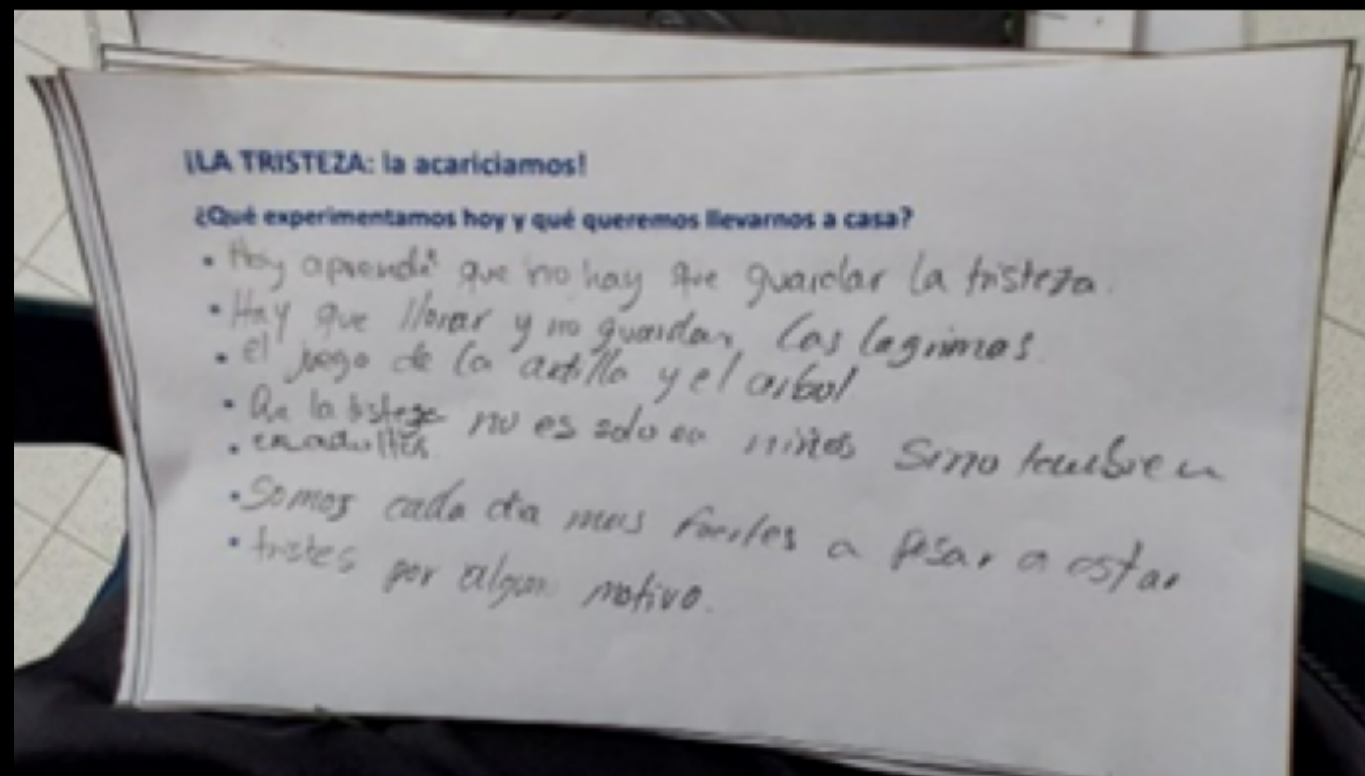 ¡LA TRISTEZA: la acariciamos!
¿Qué experimentamos hoy y qué queremos llevarnos a casa?
• Hoy aprendi que no hay que guardar la tristeza.
• Hay que llorar y no guardar las lagrimas.
• el juego de la ardilla y el arbol
• Que la tisteza no es solo en niños sino tambien
• en adultos
• Somos cada dia mas fuertes a pesar a estar
• tristes por algun motivo.